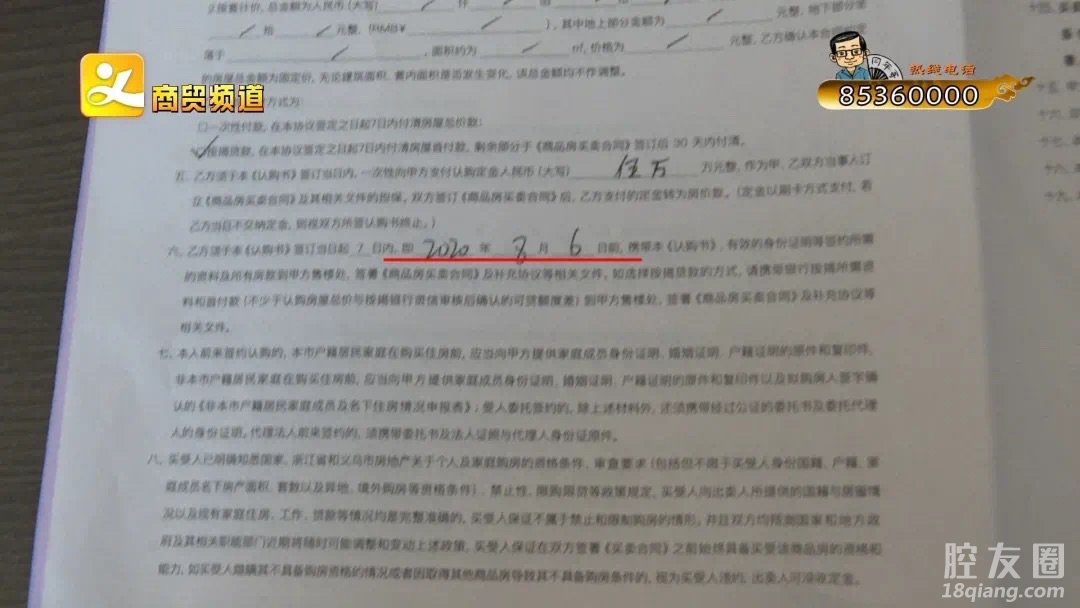 2.按套计价，总金额为人民币（大写） / 仟
/ 拾 / 元整，(RMB¥ / )，其中地上部分金额为 / 元整，地下部分金
落于 / ，面积约为 / ㎡，价格为 / 元整，乙方确认本合
的房屋总金额为固定价，无论建筑面积、套内面积是否发生变化，该总金额均不作调整。
方式为：
□一次性付款，在本协议签定之日起7日内付清房屋总价款；
☑按揭贷款，在本协议签定之日起7日内付清房屋首付款，剩余部分于《商品房买卖合同》签订后 30 天内付清。
五、乙方须于本《认购书》签订当日内，一次性向甲方支付认购定金人民币（大写） 伍万 万元整，作为甲、乙双方当事人订
立《商品房买卖合同》及其相关文件的担保。双方签订《商品房买卖合同》后，乙方支付的定金转为房价款。（定金以刷卡方式支付，若
乙方当日不交纳定金，则视双方所签认购书终止。）
六、乙方须于本《认购书》签订当日起 7 日内，即 2020 年 8 月 6 日前，携带本《认购书》、有效的身份证明等签约所需
的资料及所有房款到甲方售楼处，签署《商品房买卖合同》及补充协议等相关文件。如选择按揭贷款的方式，请携带银行按揭所需资
料和首付款（不少于认购房屋总价与按揭银行资信审核后确认的可贷额度差）到甲方售楼处，签署《商品房买卖合同》及补充协议等
相关文件。
七、本人前来签约认购的，本市户籍居民家庭在购买住房前，应当向甲方提供家庭成员身份证明、婚姻证明、户籍证明的原件和复印件，
非本市户籍居民家庭在购买住房前，应当向甲方提供家庭成员身份证明、婚姻证明、户籍证明的原件和复印件以及拟购房人签字确
认的《非本市户籍居民家庭成员及名下住房情况申报表》；受人委托签约的，除上述材料外，还须携带经过公证的委托书及委托代理
人的身份证明。代理法人前来签约的，须携带委托书及法人证照与代理人身份证原件。
八、买受人已明确知悉国家、浙江省和义乌市房地产关于个人及家庭购房的资格条件、审查要求（包括但不限于买受人身份国籍、户籍、家
庭成员名下房产面积、套数以及异地、境外购房等资格条件）、禁止性、限购限贷等政策规定，买受人向出卖人所提供的国籍与居留情
况以及现有家庭住房、工作、贷款等情况均是完整准确的，买受人保证不属于禁止和限制购房的情形，并且双方均预测国家和地方政
府及其相关职能部门近期将随时可能调整和变动上述政策，买受人保证在双方签署《买卖合同》之前始终具备买受该商品房的资格和
能力，如买受人隐瞒其不具备购房资格的情况或者因取得其他商品房导致其不具备购房条件的，视为买受人违约，出卖人可没收定金。
十四、
十五、甲
十六、
十七、
十八、
十九、
商贸频道
同年哥
热线电话
85360000
腔友圈
18qiang.com